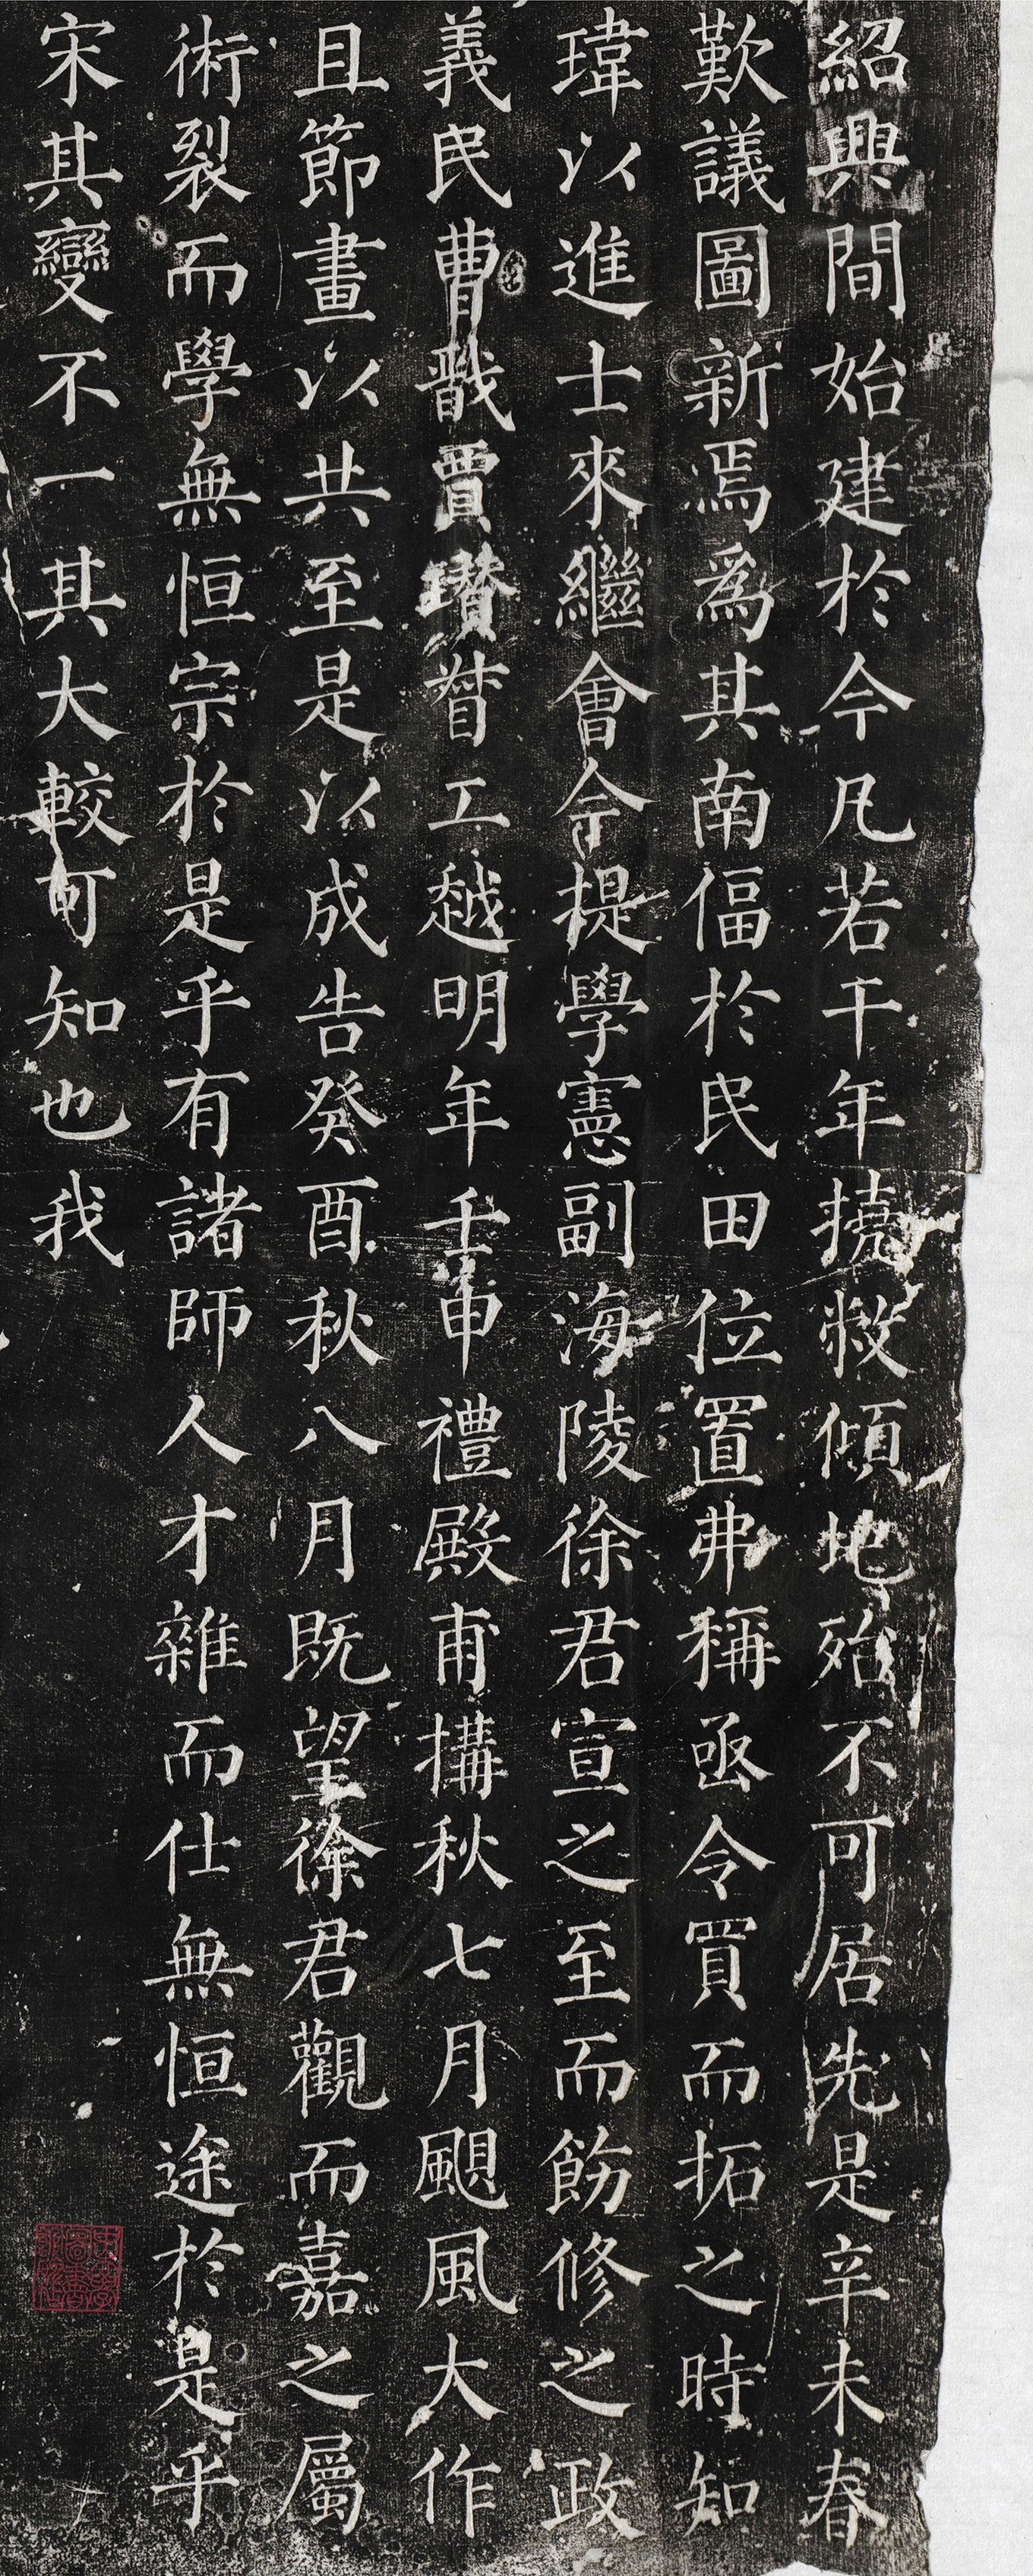 紹興間始建於今凡若干年撓救傾地殆不可居先是辛未春
歎議圖新焉爲其南偪於民田位置弗稱亟令買而拓之時知
瑋以進士來繼會今提學憲副海陵徐君宣之至而飭修之政
義民曹戩賈瓚督工越明年壬申禮殿甫搆秋七月颶風大作
且節畫以共至是以成告癸酉秋八月既望徐君觀而嘉之屬
術裂而學無恒宗於是乎有諸師人才雜而仕無恒途於是乎
宋其變不一其大較可知也我